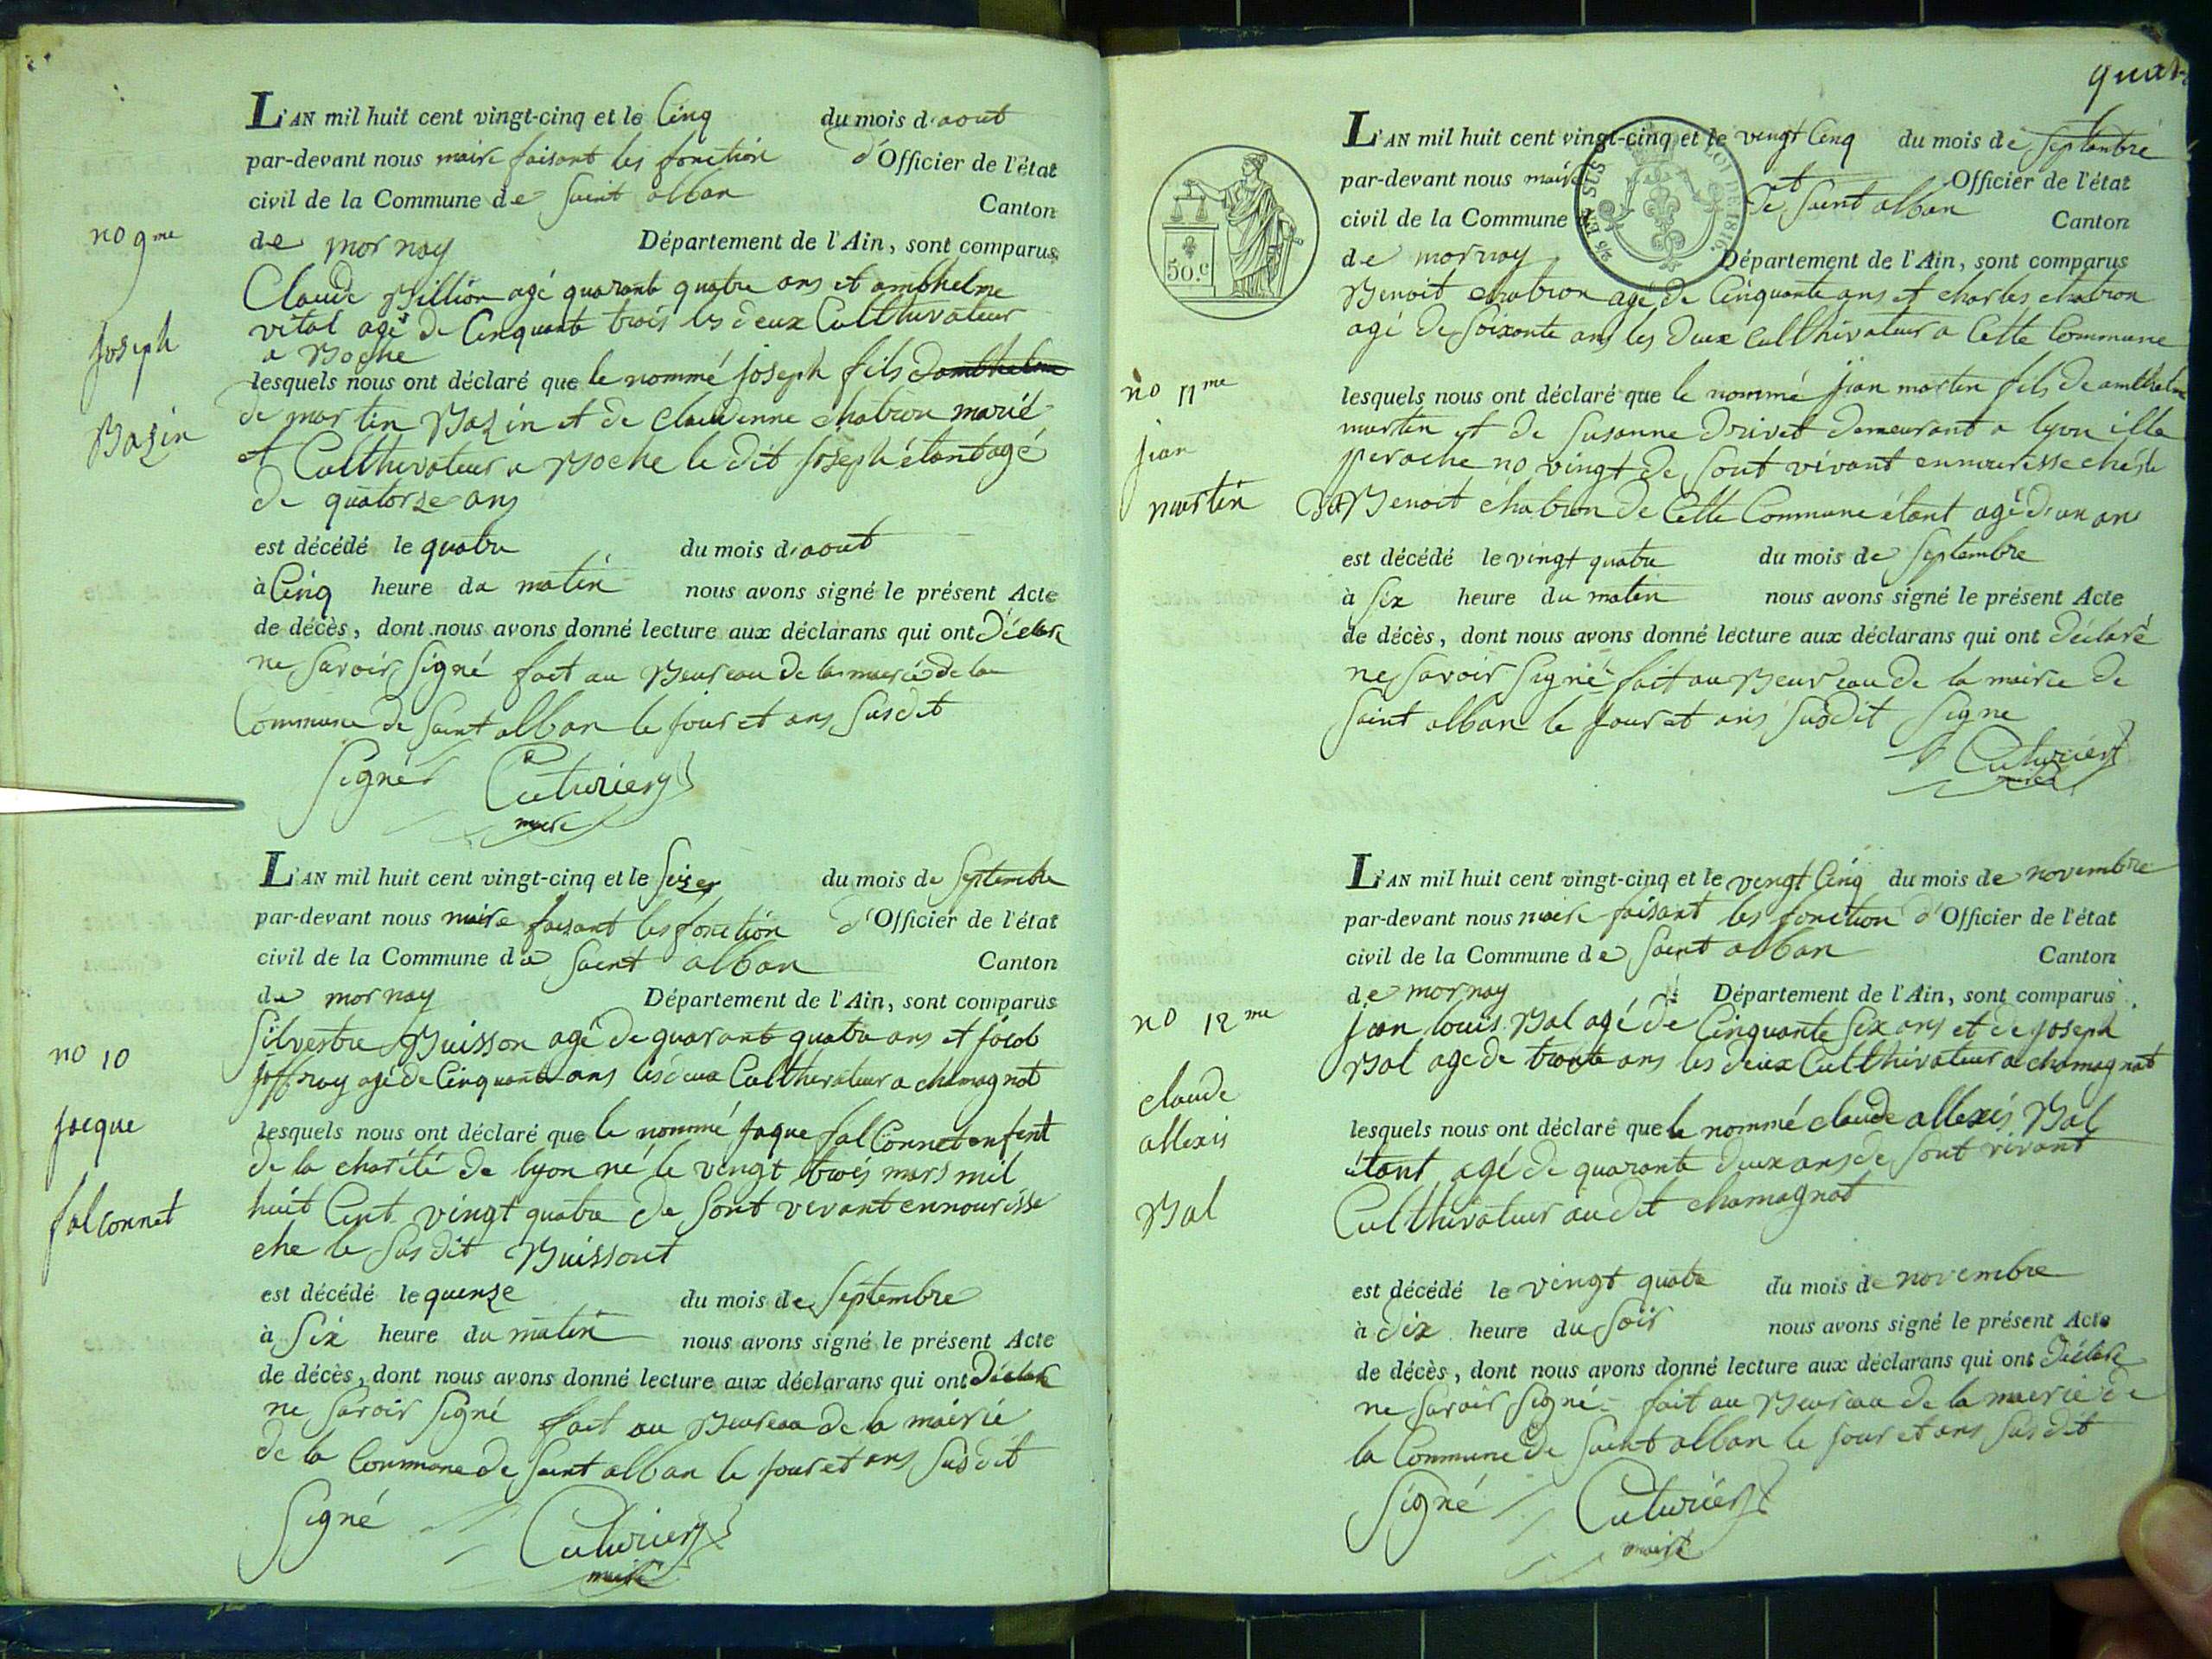 L'AN mil huit cent vingt-cinq et le Cinq du mois d'aout
par-devant nous maire faisant les fonction d'Officier de l'état
civil de la Commune de Saint alban Canton
de mornay Département de l'Ain, sont comparus
no 9me
Claude Billion agé quarante quatre ans et anthelme
vital agé de Cinquante trois les deux Culthivateur
a Boche
joseph
Bazin
lesquels nous ont déclaré que le nommé joseph fils danthelme
de martin Bazin et de claudenne chatron marié
et Culthivateur a Boche le dit joseph étant agé
de quatorse ans
est décédé le quatre du mois d'aout
à Cinq heure du matin nous avons signé le présent Acte
de décès, dont nous avons donné lecture aux déclarans qui ont déclare
ne savoir signé fait au Beureau de la mairie de la
Commune de saint alban le jour et ans susdit
signé Cuturier
maire
L'AN mil huit cent vingt-cinq et le seize du mois de septembre
par-devant nous maire faisant les fonction d'Officier de l'état
civil de la Commune de saint alban Canton
de mornay Département de l'Ain, sont comparus
no 10
jacque
falconnet
silvestre Buisson agé de quarante quatre ans et jacob
joffray agé de Cinquante ans les deux Culthivateur a chamagnat
lesquels nous ont déclaré que le nommé jaque falConnet enfent
de la charité de lyon né le vingt trois mars mil
huit Cent vingt quatre de sont vivant ennourisse
che le susdit Buissont
est décédé le quenze du mois de septembre
à six heure du matin nous avons signé le présent Acte
de décès, dont nous avons donné lecture aux déclarans qui ont déclare
ne savoir signé fait au Beureau de la mairie
de la Commune de saint alban le jour et ans susdit
signé Cuturier
maire
quat
50.c
% EN SUS
LOI DE 1816.
L'AN mil huit cent vingt-cinq et le vingt Cinq du mois de septembre
par-devant nous maire Officier de l'état
civil de la Commune de saint alban Canton
de mornay Département de l'Ain, sont comparus
Benoit chatron agé de Cinquante ans et charles chatron
agé de soixante ans les deux culthivateur a Cette Commune
no 11me
jean
martin
lesquels nous ont déclaré que le nommé jean martin fils de anthelme
martin et de susanne drivet demeurant a lyon ille
perache no vingt de sont vivant ennourisse ché le
dit Benoit chatron de Cette Commune étant agé d'un an
est décédé le vingt quatre du mois de septembre
à six heure du matin nous avons signé le présent Acte
de décès, dont nous avons donné lecture aux déclarans qui ont déclaré
ne savoir signé fait au Beureau de la mairie de
saint alban le jour et ans susdit signe
Cuturier
maire
L'AN mil huit cent vingt-cinq et le vengt Cinq du mois de novembre
par-devant nous maire faisant les fonction d'Officier de l'état
civil de la Commune de saint alban Canton
de mornay Département de l'Ain, sont comparus
no 12me
claude
allexis
Bal
jean louis Bal agé de Cinquante six ans et de joseph
Bal agé de trante ans les deux Culthivateur a chamagnat
lesquels nous ont déclaré que le nommé claude allexis Bal
étant agé de quarante deux ans de sont vivant
Culthivateur audit chamagnat
est décédé le vingt quatre du mois de novembre
à dix heure du soir nous avons signé le présent Acte
de décès, dont nous avons donné lecture aux déclarans qui ont déclare
ne savoir signé fait au Beureau de la mairie de
la Commune de saint alban le jour et ans susdit
signé Cuturier
maire